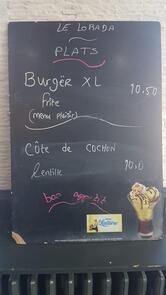 LE LORADA
PLATS
Burgër XL 10.50
frite
(menu plaisir)
Côte de COCHON
lentille 10.0
bon appétit